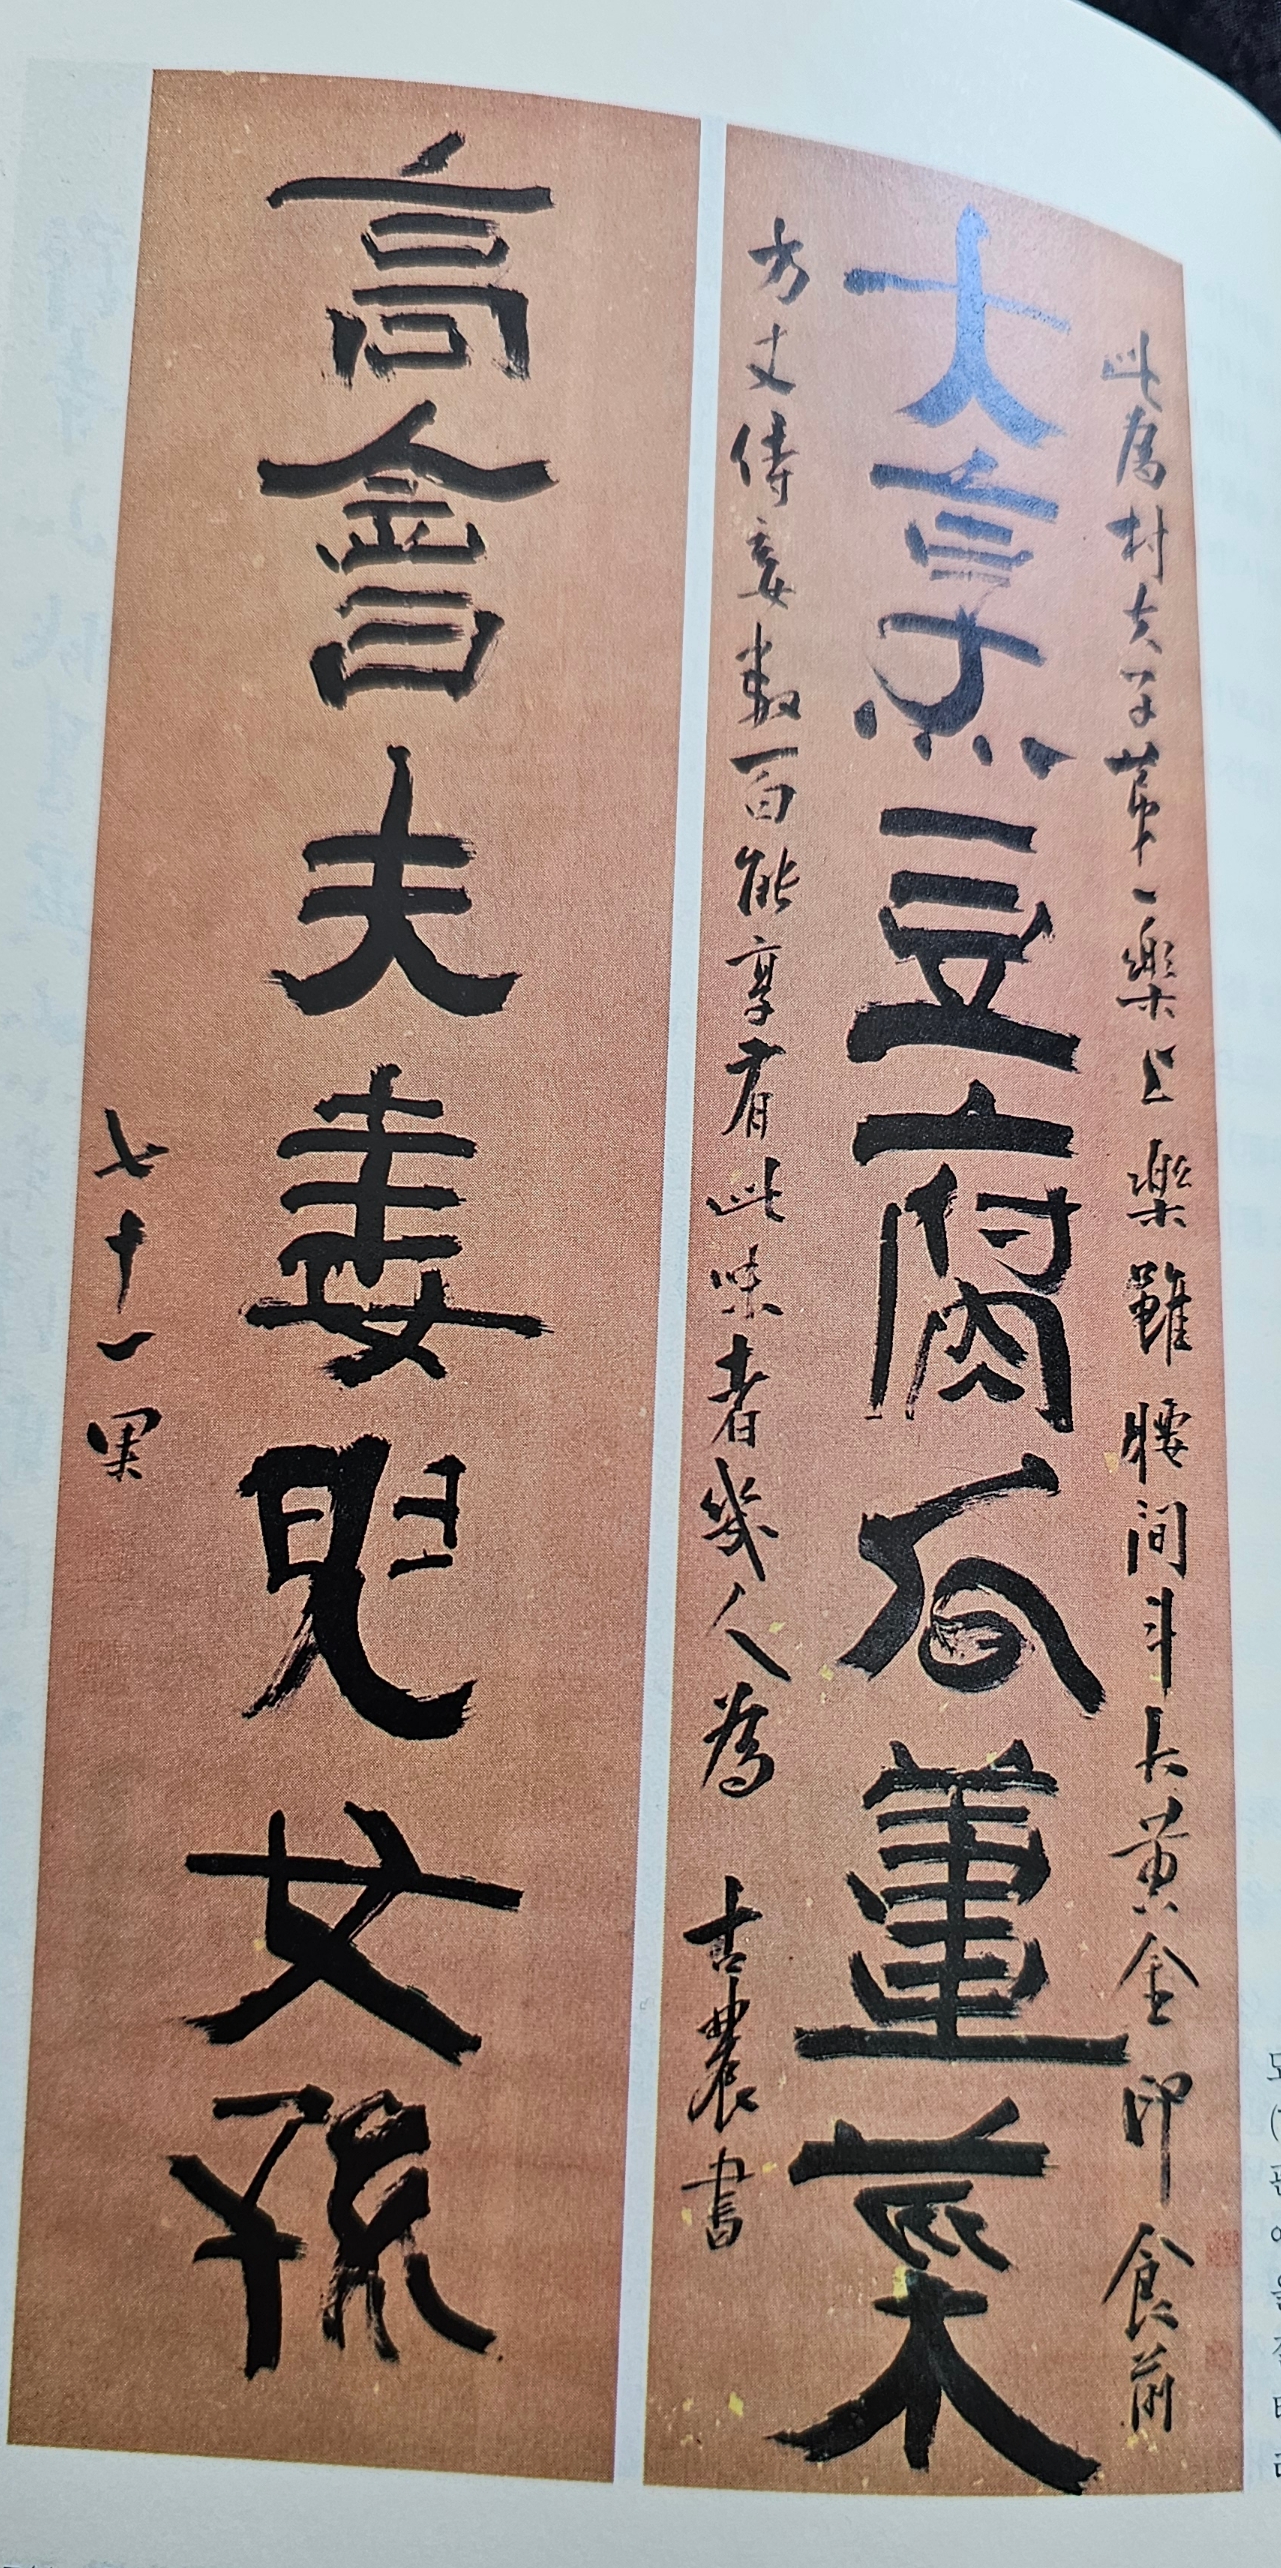 此爲村夫子第一樂上樂雖腰間斗大黃金印食前
大烹豆腐瓜薑菜
方丈侍妾數百能享有此味者幾人爲 古農書
高會夫妻兒女孫
七十一果